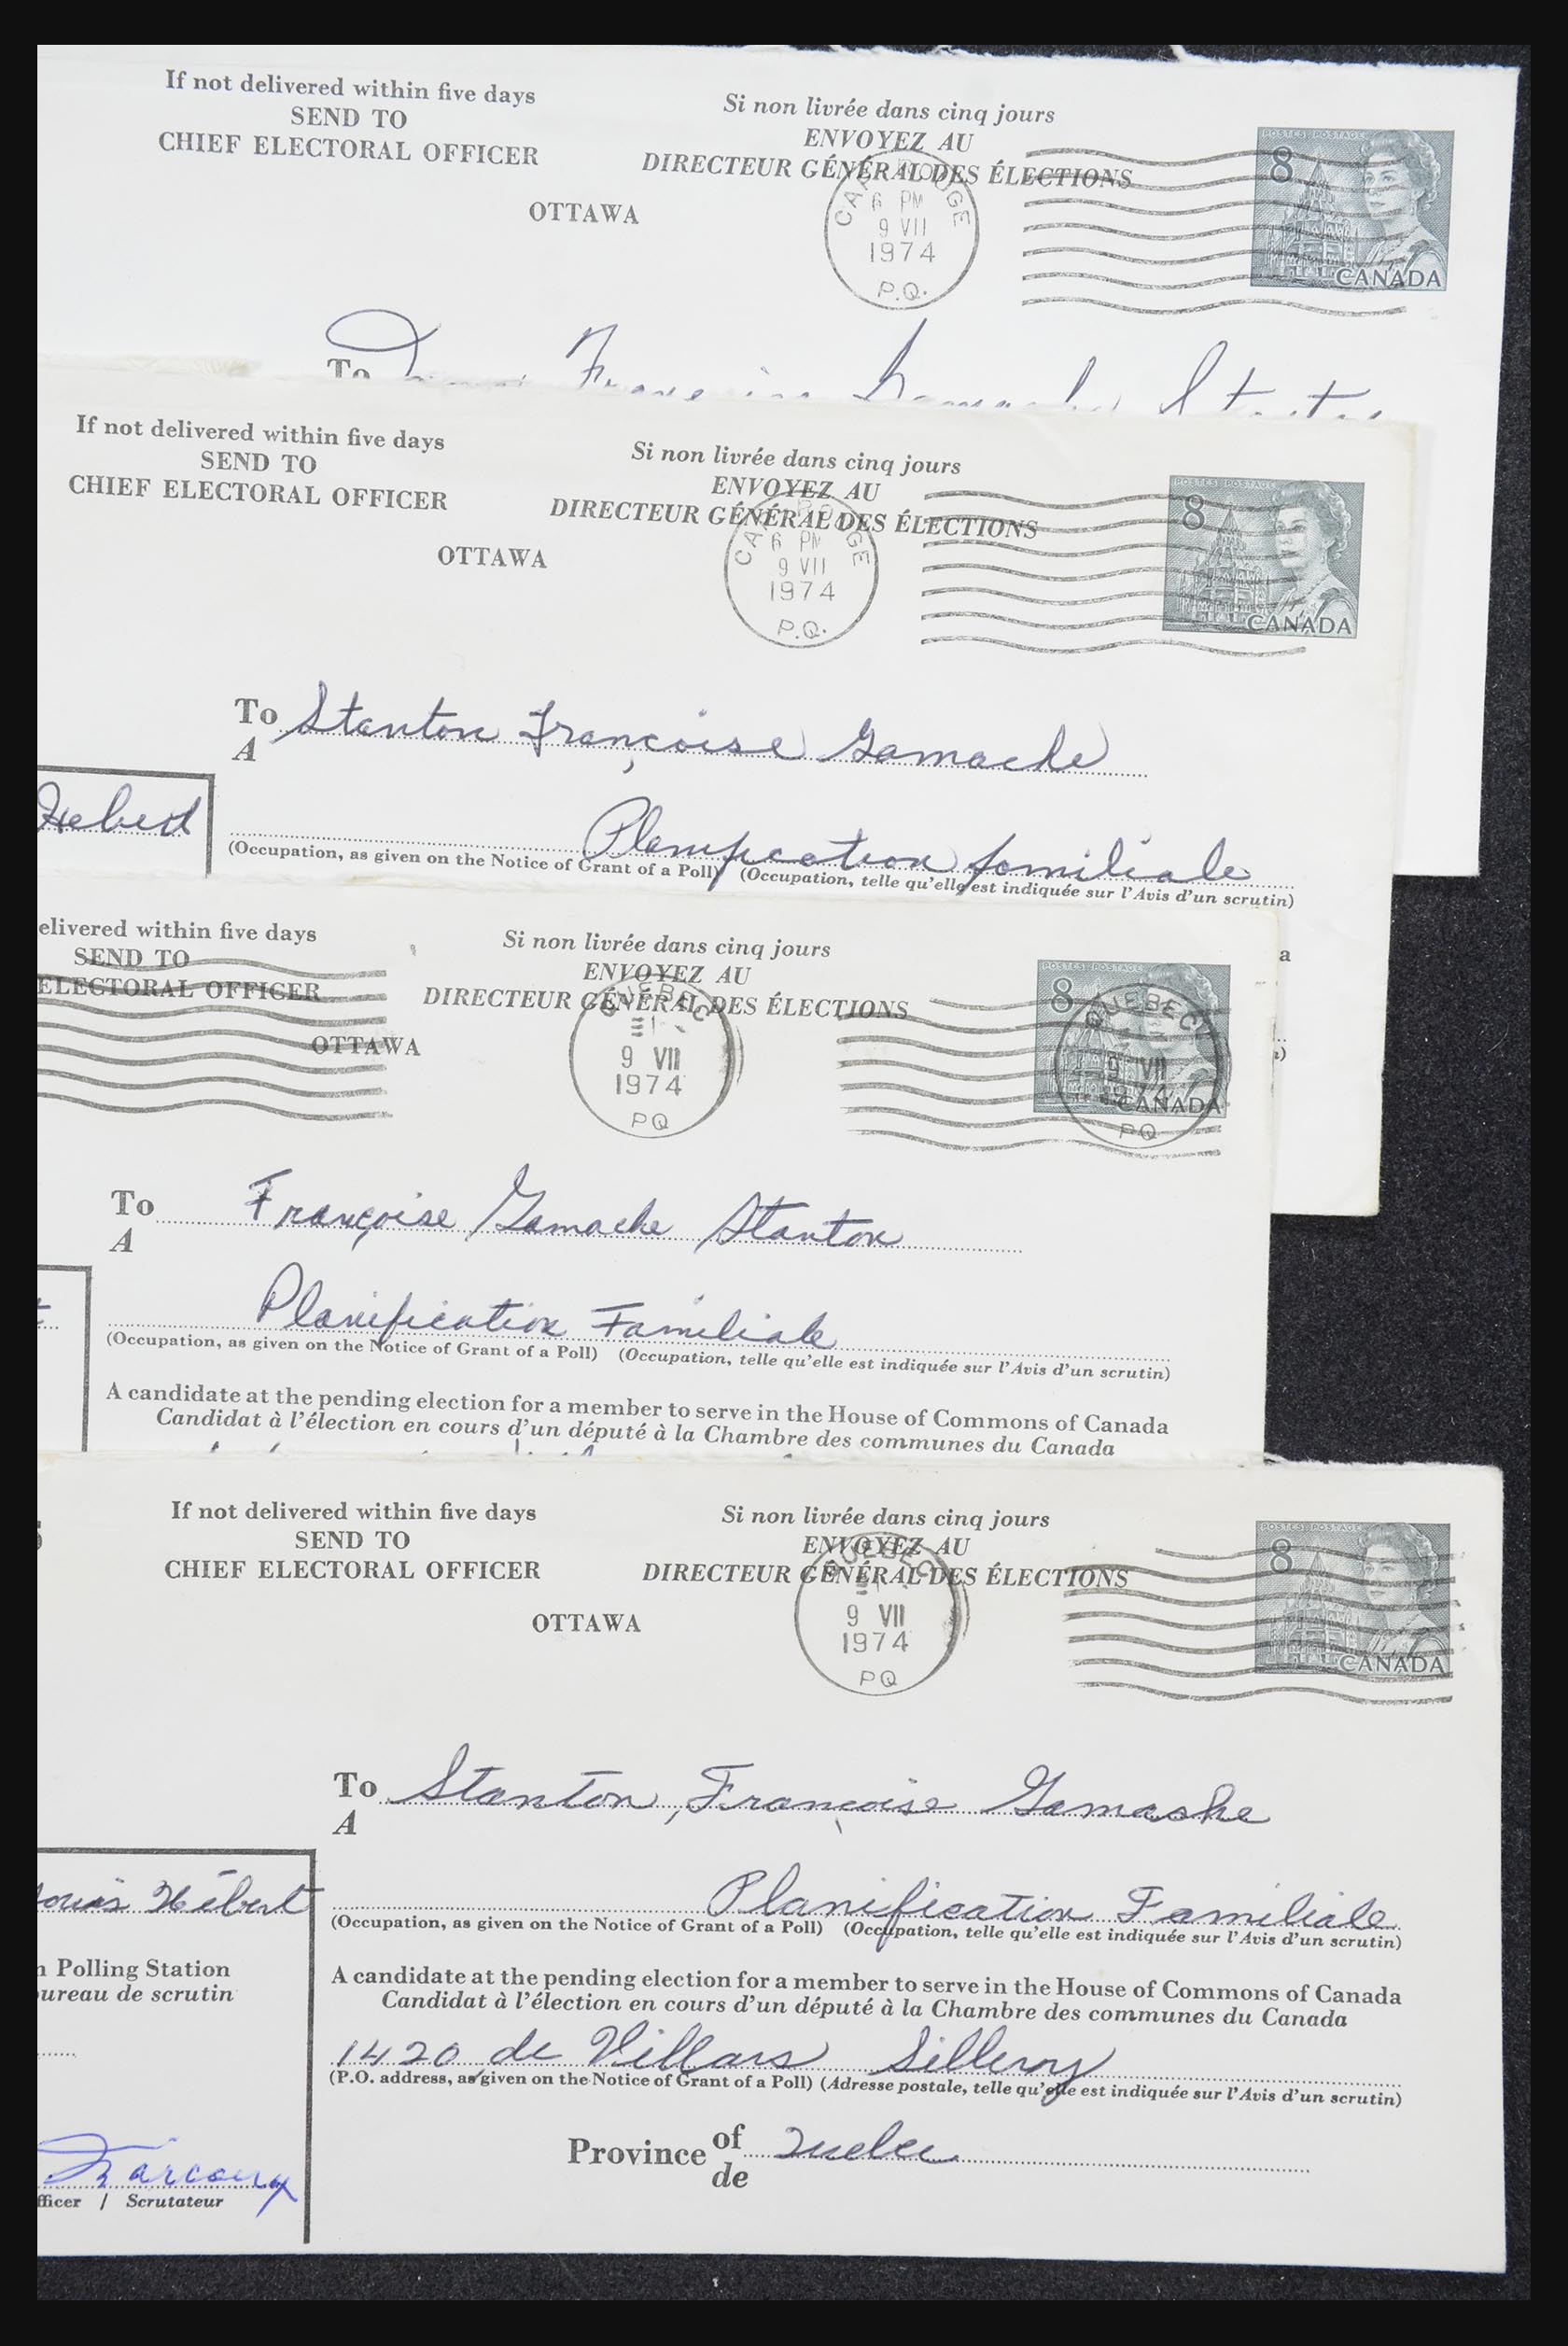 If not delivered within five days
SEND TO
CHIEF ELECTORAL OFFICER
Si non livrée dans cinq jours
ENVOYEZ AU
DIRECTEUR GÉNÉRAL DES ÉLECTIONS
OTTAWA
CAP ROUGE
6 PM
9 VII
1974
P.Q.
POSTES POSTAGE
8
CANADA
To
If not delivered within five days
SEND TO
CHIEF ELECTORAL OFFICER
Si non livrée dans cinq jours
ENVOYEZ AU
DIRECTEUR GÉNÉRAL DES ÉLECTIONS
OTTAWA
CAP ROUGE
6 PM
9 VII
1974
P.Q.
POSTES POSTAGE
8
CANADA
To Stanton Françoise Gamache
A
Hebert
Planification familiale
(Occupation, as given on the Notice of Grant of a Poll) (Occupation, telle qu'elle est indiquée sur l'Avis d'un scrutin)
a
elivered within five days
SEND TO
ELECTORAL OFFICER
Si non livrée dans cinq jours
ENVOYEZ AU
DIRECTEUR GÉNÉRAL DES ÉLECTIONS
OTTAWA
QUEBEC
9 VII
1974
PQ
POSTES POSTAGE
8
CANADA
QUEBEC
9 VII
PQ
To Françoise Gamache Stanton
A
Planification Familiale
(Occupation, as given on the Notice of Grant of a Poll) (Occupation, telle qu'elle est indiquée sur l'Avis d'un scrutin)
A candidate at the pending election for a member to serve in the House of Commons of Canada
Candidat à l'élection en cours d'un député à la Chambre des communes du Canada
If not delivered within five days
SEND TO
CHIEF ELECTORAL OFFICER
Si non livrée dans cinq jours
ENVOYEZ AU
DIRECTEUR GÉNÉRAL DES ÉLECTIONS
OTTAWA
QUEBEC
9 VII
1974
PQ
POSTES POSTAGE
8
CANADA
To Stanton, Françoise Gamache
A
ouis Hébert
Planification Familiale
(Occupation, as given on the Notice of Grant of a Poll) (Occupation, telle qu'elle est indiquée sur l'Avis d'un scrutin)
n Polling Station
ureau de scrutin
A candidate at the pending election for a member to serve in the House of Commons of Canada
Candidat à l'élection en cours d'un député à la Chambre des communes du Canada
1420 de Villars Sillery
(P.O. address, as given on the Notice of Grant of a Poll) (Adresse postale, telle qu'elle est indiquée sur l'Avis d'un scrutin)
Province of Quebec
de
fficer / Scrutateur